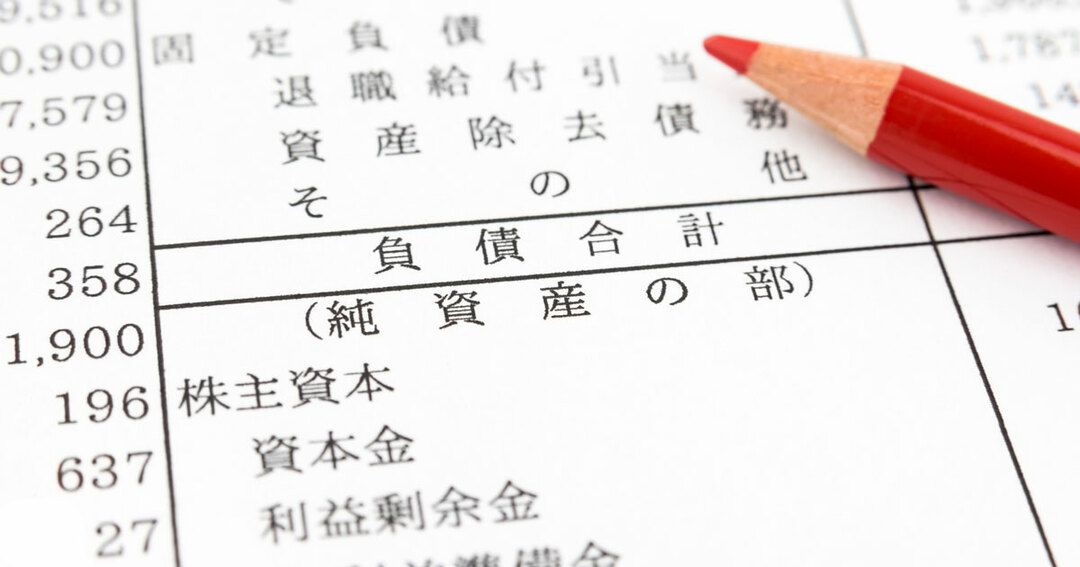 0,900
7,579
9,356
264
358
1,900
196
637
27
固定負債
退職給付引当
資産除去債務
その他
負債合計
(純資産の部)
株主資本
資本金
利益剰余金
準備金
1,787
14
10